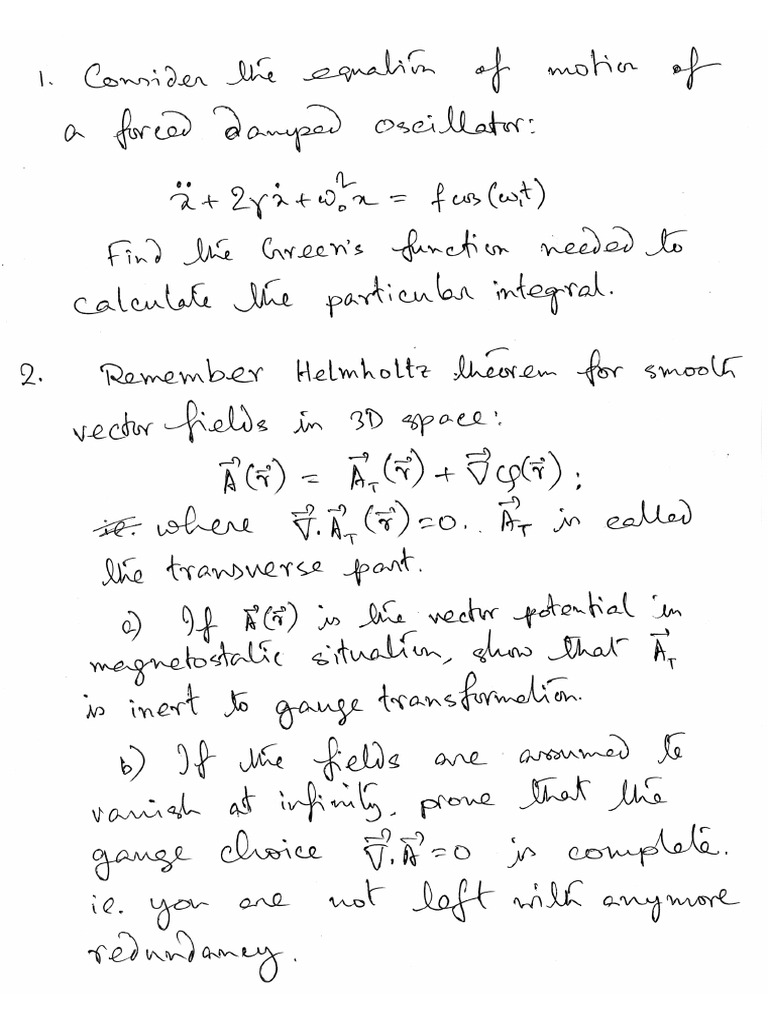 1. Consider the equation of motion of
a forced damped oscillator:
ẍ + 2γẋ + ω₀²x = f cos(ω₁t)
Find the Green's function needed to
calculate the particular integral.
2. Remember Helmholtz theorem for smooth
vector fields in 3D space:
A⃗(r⃗) = A⃗_T(r⃗) + ∇⃗φ(r⃗);
where ∇⃗.A⃗_T(r⃗)=0. A⃗_T is called
the transverse part.
a) If A⃗(r⃗) is the vector potential in
magnetostatic situation, show that A⃗_T
is inert to gauge transformation.
b) If the fields are assumed to
vanish at infinity, prove that the
gauge choice ∇⃗.A⃗=0 is complete.
ie. you are not left with anymore
redundancy.